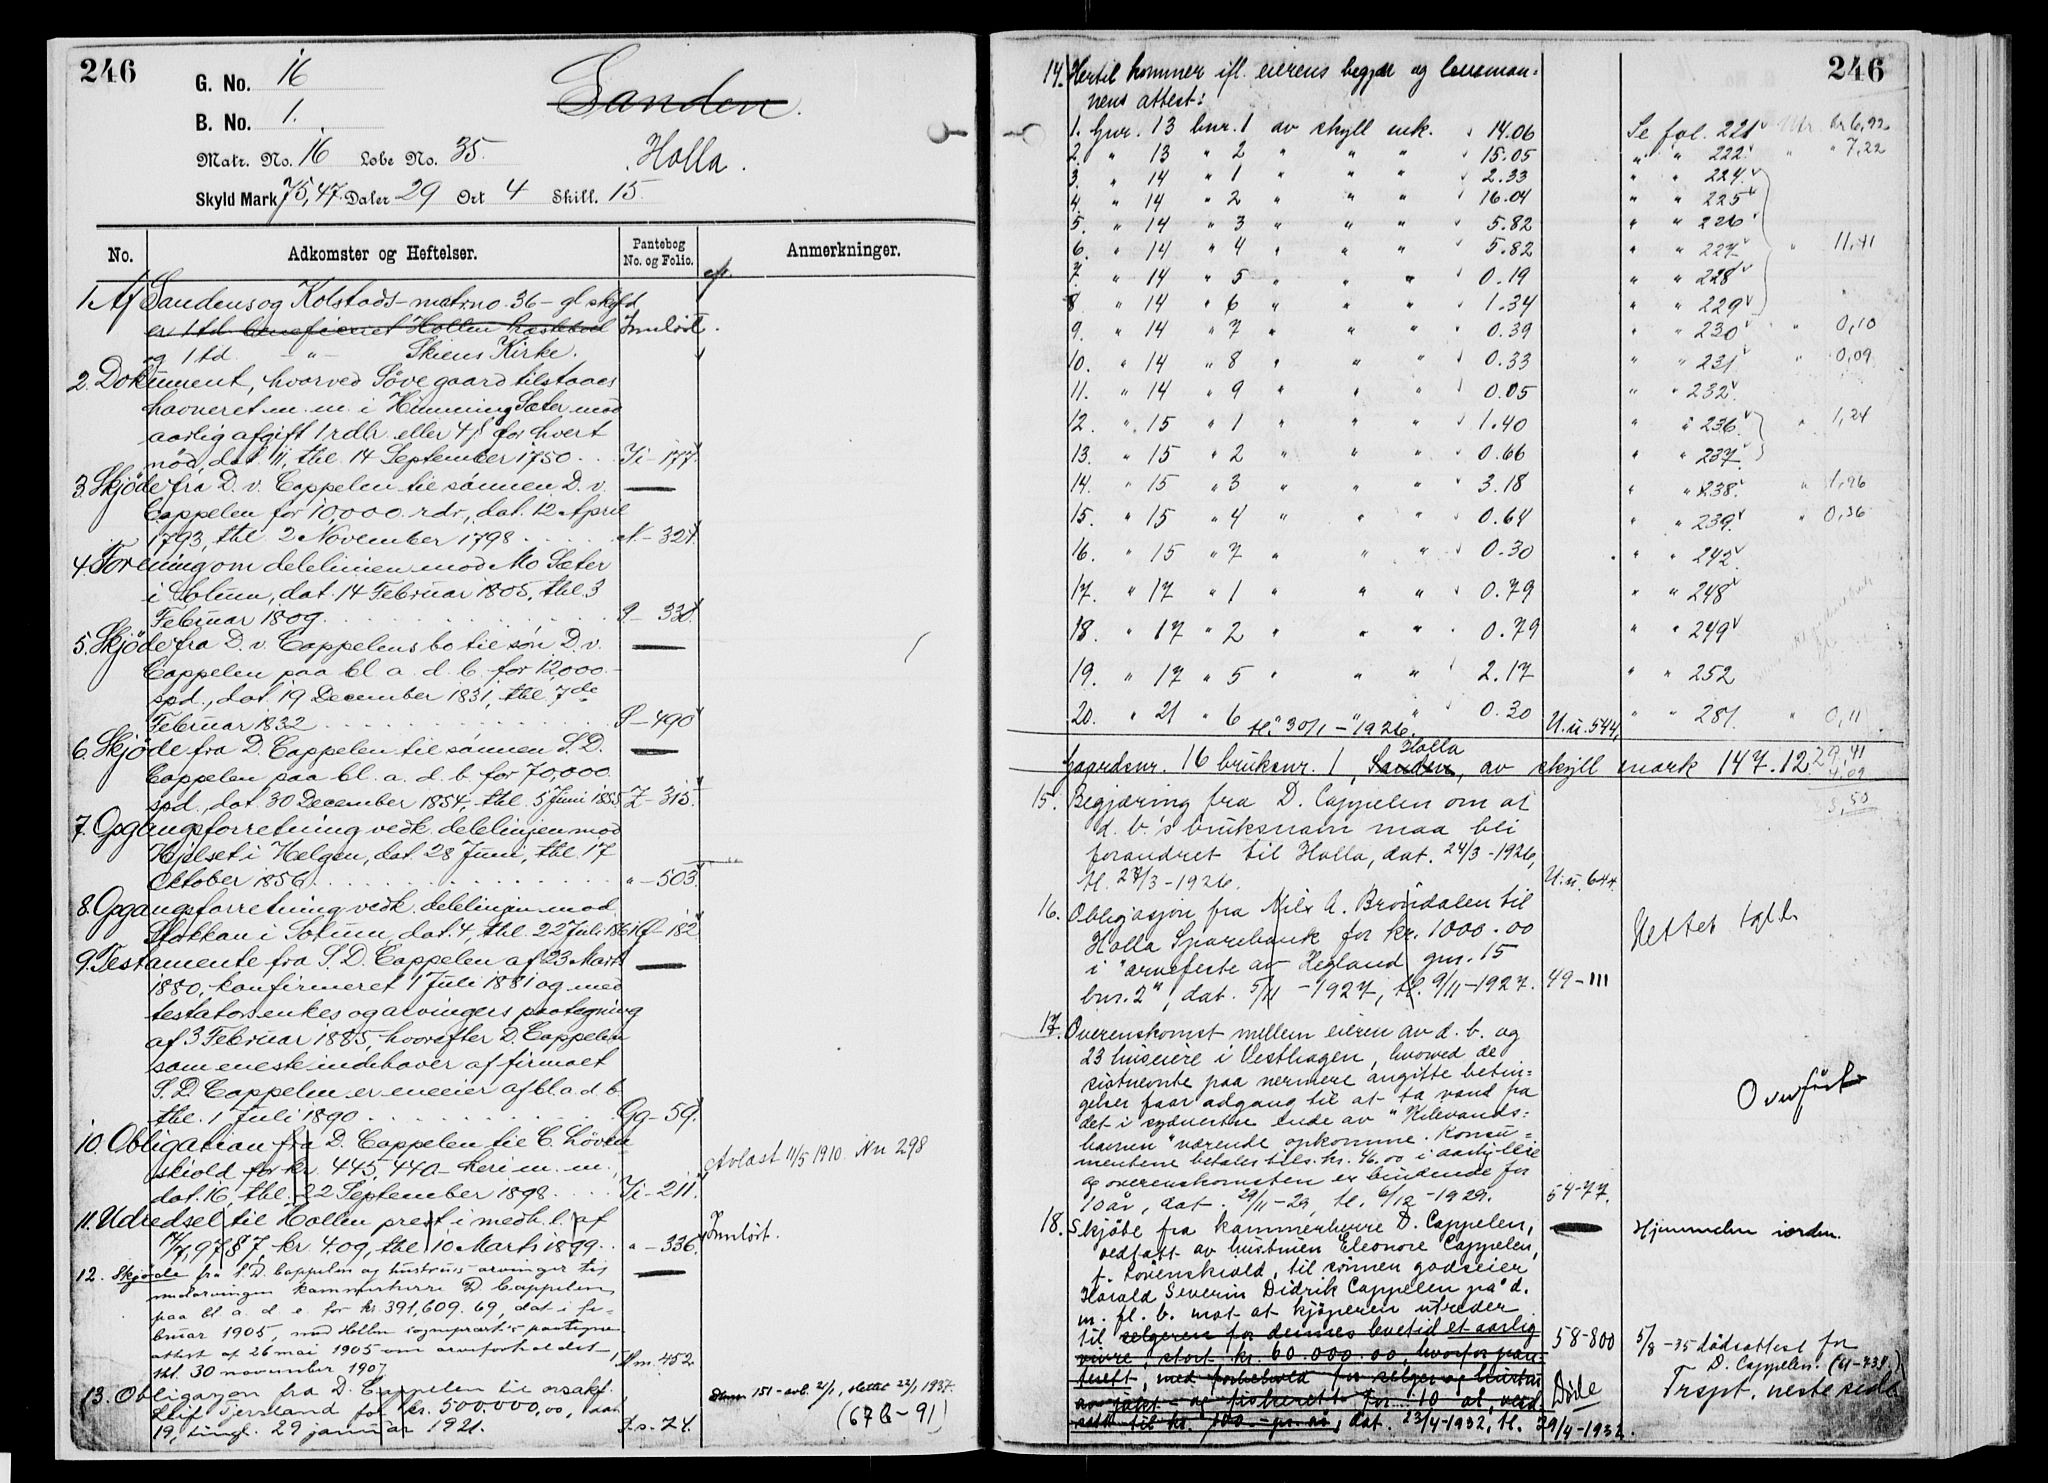 246
G. No. 16
B. No. 1.
Sanden.
Matr. No. 16 Løbe No. 35.
Holla.
Skyld Mark 75,47. Daler 29 Ort 4 Skill. 15.
No. Adkomster og Heftelser. Pantebog No. og Folio. Anmerkninger.
1. Af Sandens og Kolstads - matrno. 36 - gl. skyld
er 1 td. beneficeret Hollen Innløst.
og 1 td. -"- Skiens Kirke.
2. Dokument, hvorved Söve gaard tilstaaes
havneret m. m. i Himning Sæter mod
aarlig afgift 1 rdlr. eller 4 β for hvert
nöd, dat. 11, thl. 14 September 1750. Ji - 177.
3. Skjöde fra D. v. Cappelen til sönnen D. v.
Cappelen for 10,000 rdr., dat. 12 April
1793, thl. 2 November 1798 N - 324
4. Forening om delelinien mod Mo Sæter
i Solum, dat. 14 Februar 1805, thl. 3
Februar 1809.
5. Skjöde fra D. v. Cappelens bo til sön D. v.
Cappelen paa bl. a. d. b. for 12000
spd., dat. 19 December 1831, thl. 7de
Februar 1832 S - 490
6. Skjöde fra D. Cappelen til sönnen S. D.
Cappelen paa bl. a. d. b. for 70,000
spd., dat. 30 December 1854, thl. 5 Juni 1855 Z - 315.
7. Opgangsforretning vedk. delelinjen mod
Hjelset i Helgen, dat. 28 Juni, thl. 17
Oktober 1856. " - 503.
8. Opgangsforretning vedk. delelinjen mod
Stokkan i Solum, dat. 4, thl. 22 Juli - 182
9. Testamente fra S. D. Cappelen af 23 Marts
1880, konfirmeret 1 Juli 1881 og med
testators enkes og arvingers paategning
af 3 Februar 1885, hvorefter D. Cappelen
som eneste indehaver af firmaet
S. D. Cappelen er eneeier af bl. a. d. b.
thl. 1 Juli 1890 Gg - 59.
10. Obligation fra D. Cappelen til C. Löven-
skiold for kr. 445,440 - heri m. m.,
dat. 16, thl. 22 September 1898. Ji - 211.
Avlæst 11/5 1910 Nr 298
11. Udredsel til Hollen prest i medh. l. af
14/7, 97 § 7, kr. 4.09, thl. 10 Marts 1899. " - 336. Innløst.
12. Skjöde fra S. D. Cappelen og hustrues arvinger til
medarvingen kammerherre D. Cappelen
paa bl. a. d. e. for kr. 391,609.69, dat. i fe-
bruar 1905, med Hollen sogneprests paategne
attest af 26 mai 1905 om arveforholdet
thl. 30 november 1907 Mm. 452
13. Obligasjon fra D. Cappelen til orsakf.
Leif Tjersland for kr. 500.000,00, dat.
19, tingl. 29 januar 1921. Ss. 74.
151 - avl. 21/1, slettet 22/1 1937.
(67 B - 91)
246
14. Hertil kommer ifl. eierens begjær og lensman-
nens attest:
1. Gnr. 13 bnr. 1 av skyll mk. 14.06 Se fol. 221
2. " 13 " 2 " " " 15.05 " " 222 " " 7,22
3. " 14 " 1 " " " 2.33 " " 224
4. " 14 " 2 " " " 16.04 " " 225
5. " 14 " 3 " " " 5.82 " " 226
6. " 14 " 4 " " " 5.82 " " 227 " 11,41
7. " 14 " 5 " " " 0.19 " " 228
8 " 14 " 6 " " " 1.34 " " 229
9. " 14 " 7 " " " 0.39 " " 230 " 0,10
10. " 14 " 8 " " " 0.33 " " 231 " 0,09
11. " 14 " 9 " " " 0.05 " " 232
12. " 15 " 1 " " " 1.40 " " 236 " 1,24
13. " 15 " 2 " " " 0.66 " " 237
14. " 15 " 3 " " " 3.18 " " 238. " 1,26
15. " 15 " 4 " " " 0.64 " " 239 " 0,36
16. " 15 " 7 " " " 0.30 " " 242
17. " 17 " 1 " " " 0.79 " " 248
18. " 17 " 2 " " " 0.79 " " 249
19. " 17 " 5 " " " 2.17 " " 252
20. " 21 " 6 " " 0.30 " " 281. " 0,11
tl. 30/1 - 1926. U.u. 544.
Gaardsnr. 16 bruksnr. 1, Sanden, Holla av skyll mark 147.12
29,41
4.09
15. Begjæring fra D. Cappelen om at
d. b.'s bruksnavn maa bli
forandret til Holla, dat. 24/3 - 1926,
tl. 27/3 - 1926. U.u. 644.
16. Obligasjon fra Nils A. Bröndalen til
Holla Sparebank for kr. 1000.00
i "arvefeste av Hegland gnr. 15
bnr. 2", dat. 5/11 - 1927, tl. 9/11 - 1927. 49 - 111
Slettet
17. Overenskomst mellem eieren av d. b. og
23 huseiere i Vesthagen, hvorved de
sistnevnte paa nermere angitte betin-
gelser faar adgang til at ta vand fra
det i sydvestre ende av "Kilevands-
havnen" værende opkomme. Konsu-
mentene betaler tils. kr. 46.00 i aarlig leie
og overenskomsten er bindende for
10 år, dat. 29/11 - 29, tl. 6/12 - 1929. 54-77.
Overført
18. Skjöte fra kammerherre D. Cappelen,
vedtatt av hustruen Eleonore Cappelen,
f. Lövenskiold, til sönnen godseier
Harald Severin Didrik Cappelen på d.
m. fl. b. mot at kjöperen utreder
til selgeren for dennes levetid et aarlig
, stort kr. 60.000.00, hvorfor pan-
terett, med forbehold for selger og hustru
av jakt - og fiskerett for 10 år, verd-
satt til kr. 700 - pr. år, dat. 23/4-1932, tl. 29/4-1932.
58-800
Hjemmelen iorden.
5/8 - 35 dödsattest for
D. Cappelen. (61-738)
Trspt. neste side